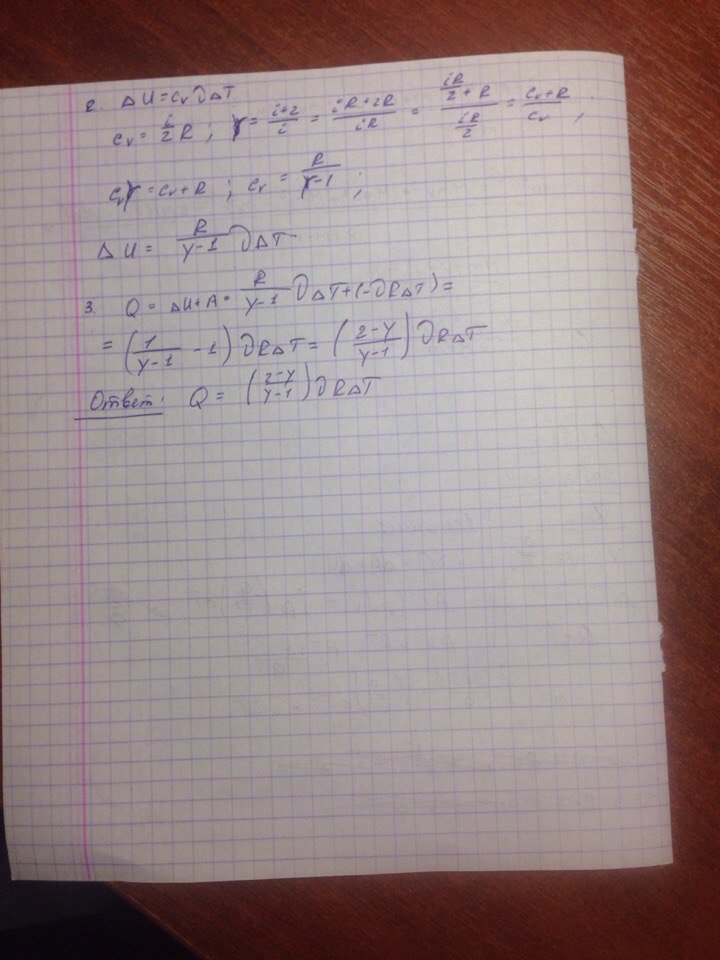 2. ΔU = cᵥ ∂ΔT
cᵥ = i/2 R ; γ = (i+2)/i = (iR+2R)/(iR) = (iR/2 + R)/(iR/2) = (cᵥ+R)/cᵥ ;
cᵥγ = cᵥ+R ; cᵥ = R/(γ-1) ;
ΔU = R/(γ-1) ∂ΔT
3. Q = ΔU+A = R/(γ-1) ∂ΔT+(-∂RΔT) =
= (1/(γ-1) - 1) ∂RΔT = ((2-γ)/(γ-1)) ∂RΔT
Ответ: Q = ((2-γ)/(γ-1)) ∂RΔT